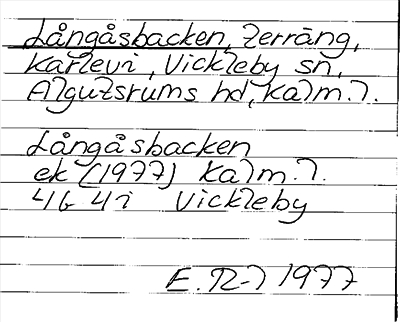 Långåsbacken, terräng,
Karlevi, Vickleby sn,
Algutsrums hd, Kalm. l.
Långåsbacken
ek (1977) Kalm. l.
4 G 4 i Vickleby
1977